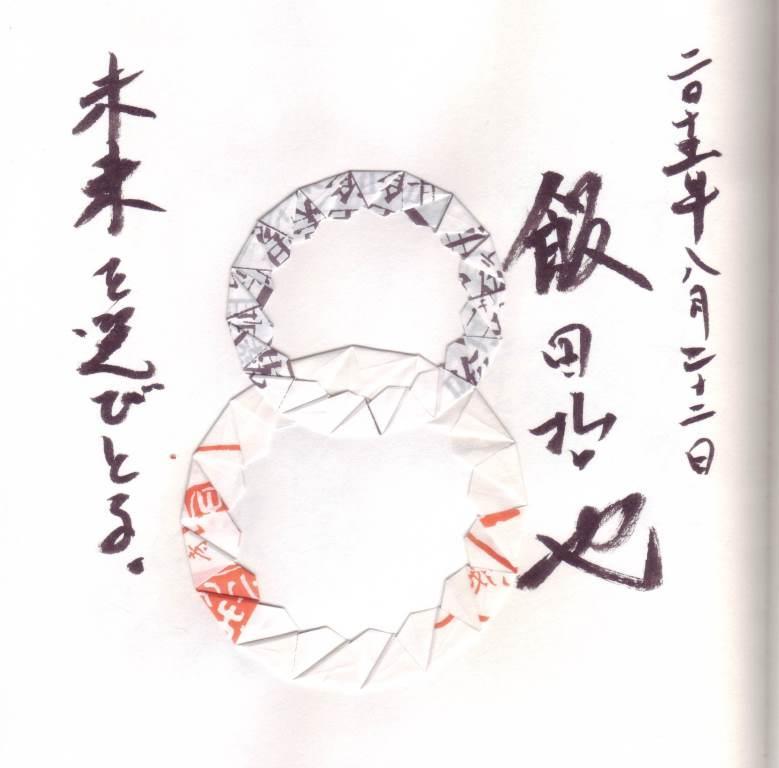 二〇十五年八月二十二日
飯田哲也
未来を選びとる。